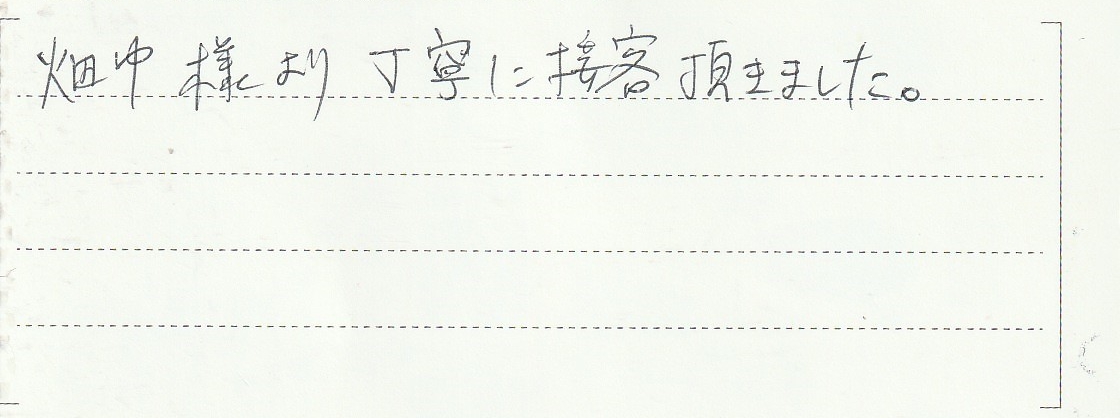 畑中様より丁寧に接客頂きました。